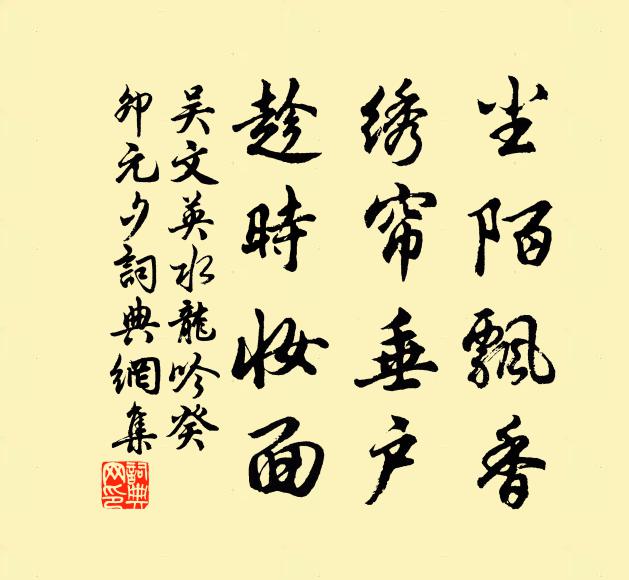 尘陌飘香
绣帘垂户
趁时妆面
吴文英水龙吟癸
卯元夕词典网集
词典网印